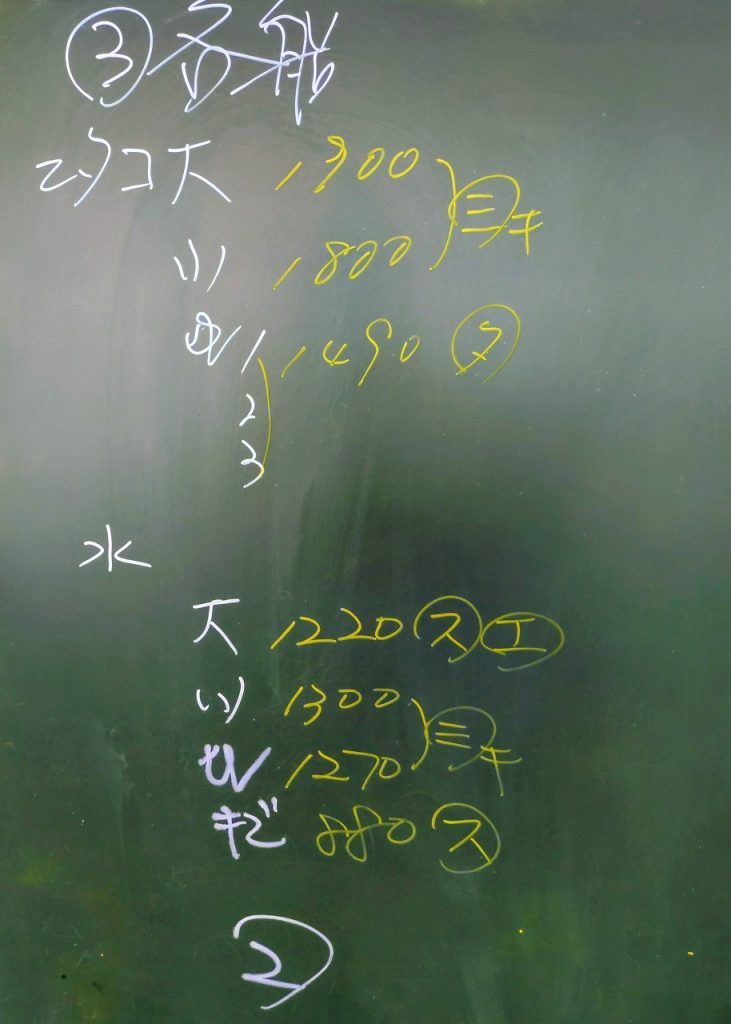 ③各船
ニタコ大 1300
小 1800 ㊂キ
1 1490 ㋜
2
3
水
大 1220 ㋜㋓
小 1300
1270 ㊂キ
キビ 880 ㋜
②